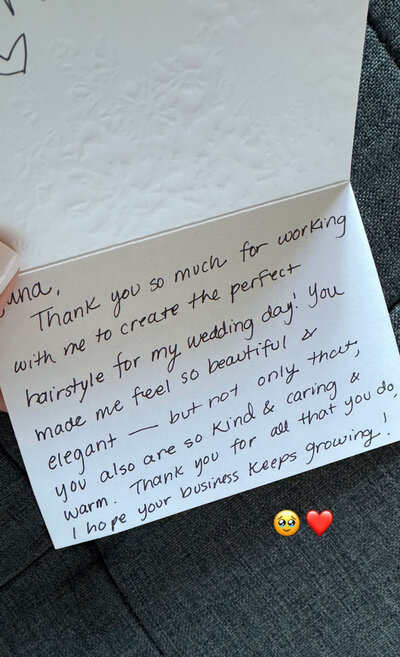 Thank you so much for working
with me to create the perfect
hairstyle for my wedding day! You
made me feel so beautiful &
elegant — but not only that,
you also are so kind & caring &
warm. Thank you for all that you do,
I hope your business keeps growing!